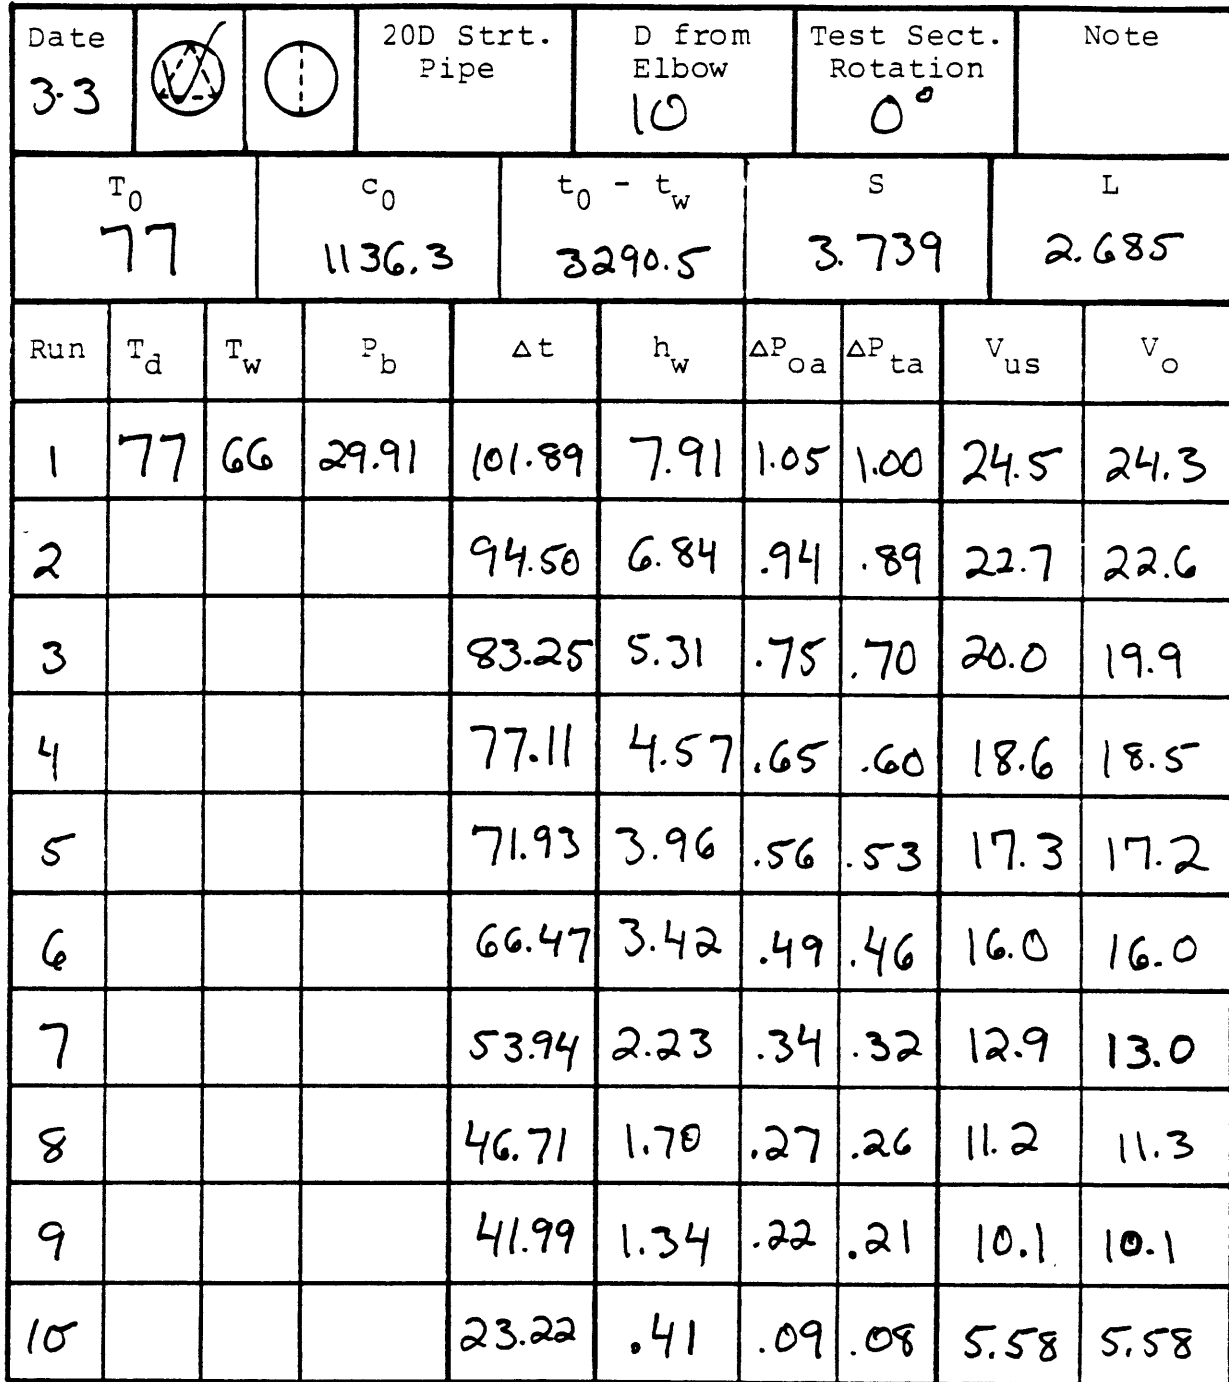 Date 20D Strt. D from Test Sect. Note
Pipe Elbow Rotation
3.3 10 0°
T0 c0 t0 - tw S L
77 1136.3 3290.5 3.739 2.685
Run Td Tw Pb Δt hw ΔPoa ΔPta Vus Vo
1 77 66 29.91 101.89 7.91 1.05 1.00 24.5 24.3
2 94.50 6.84 .94 .89 22.7 22.6
3 83.25 5.31 .75 .70 20.0 19.9
4 77.11 4.57 .65 .60 18.6 18.5
5 71.93 3.96 .56 .53 17.3 17.2
6 66.47 3.42 .49 .46 16.0 16.0
7 53.94 2.23 .34 .32 12.9 13.0
8 46.71 1.70 .27 .26 11.2 11.3
9 41.99 1.34 .22 .21 10.1 10.1
10 23.22 .41 .09 .08 5.58 5.58